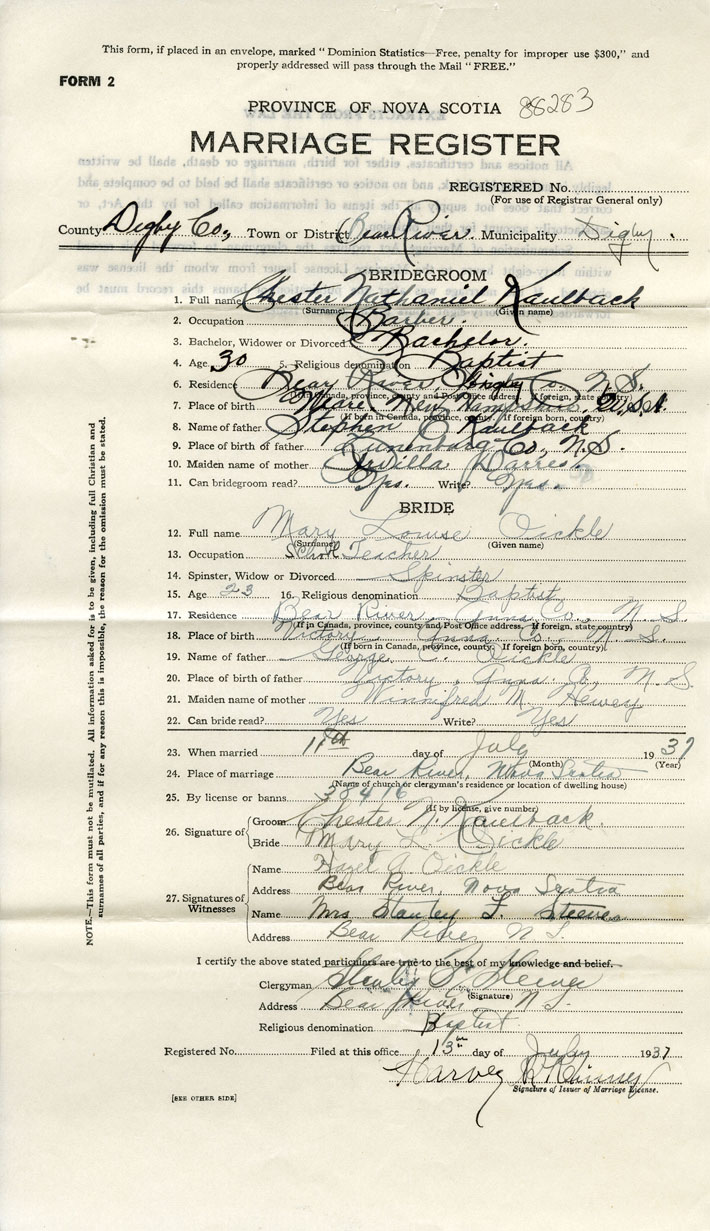 This form, if placed in an envelope, marked "Dominion Statistics—Free, penalty for improper use $300," and
properly addressed will pass through the Mail "FREE."
FORM 2
PROVINCE OF NOVA SCOTIA 88283
MARRIAGE REGISTER
REGISTERED No.
(For use of Registrar General only)
County Digby Co., Town or District Bear River. Municipality Digby.
BRIDEGROOM
1. Full name Chester Nathaniel Kaulback
(Surname) (Given name)
2. Occupation Barber.
3. Bachelor, Widower or Divorced Bachelor.
4. Age 30 5. Religious denomination Baptist
6. Residence Bear River, Digby Co., N. S.
(If in Canada, province, county and Post Office address. If foreign, state country)
7. Place of birth New Hampshire, U.S.A.
(If born in Canada, province, county. If foreign born, country)
8. Name of father Stephen Kaulback
9. Place of birth of father Lunenburg Co., N.S.
10. Maiden name of mother
11. Can bridegroom read? Yes. Write? Yes.
BRIDE
12. Full name Mary Louise Oickle
(Surname) (Given name)
13. Occupation School Teacher
14. Spinster, Widow or Divorced Spinster
15. Age 23 16. Religious denomination Baptist
17. Residence Bear River, Anna. Co., N. S.
(If in Canada, province, county and Post Office address. If foreign, state country)
18. Place of birth Victory, Anna. Co., N. S.
(If born in Canada, province, county. If foreign born, country)
19. Name of father George C. Oickle
20. Place of birth of father Victory, Anna. Co., N. S.
21. Maiden name of mother Winnifred M.
22. Can bride read? Yes Write? Yes
23. When married 11th day of July 1937
(Month) (Year)
24. Place of marriage Bear River, Nova Scotia
(Name of church or clergyman's residence or location of dwelling house)
25. By license or banns 38416
(If by license, give number)
26. Signature of
Groom Chester N. Kaulback.
Bride Mary L. Oickle
27. Signatures of Witnesses
Name Hazel A. Oickle
Address Bear River, Nova Scotia
Name Mrs Stanley F. Steeves
Address Bear River N. S.
I certify the above stated particulars are true to the best of my knowledge and belief.
Clergyman Steeves
(Signature)
Address Bear River N. S.
Religious denomination Baptist
Registered No. Filed at this office 13th day of July 1937
Harvey
Signature of Issuer of Marriage License.
[SEE OTHER SIDE]
NOTE.—This form must not be mutilated. All information asked for is to be given, including full Christian and
surnames of all parties, and if for any reason this is impossible, the reason for the omission must be stated.